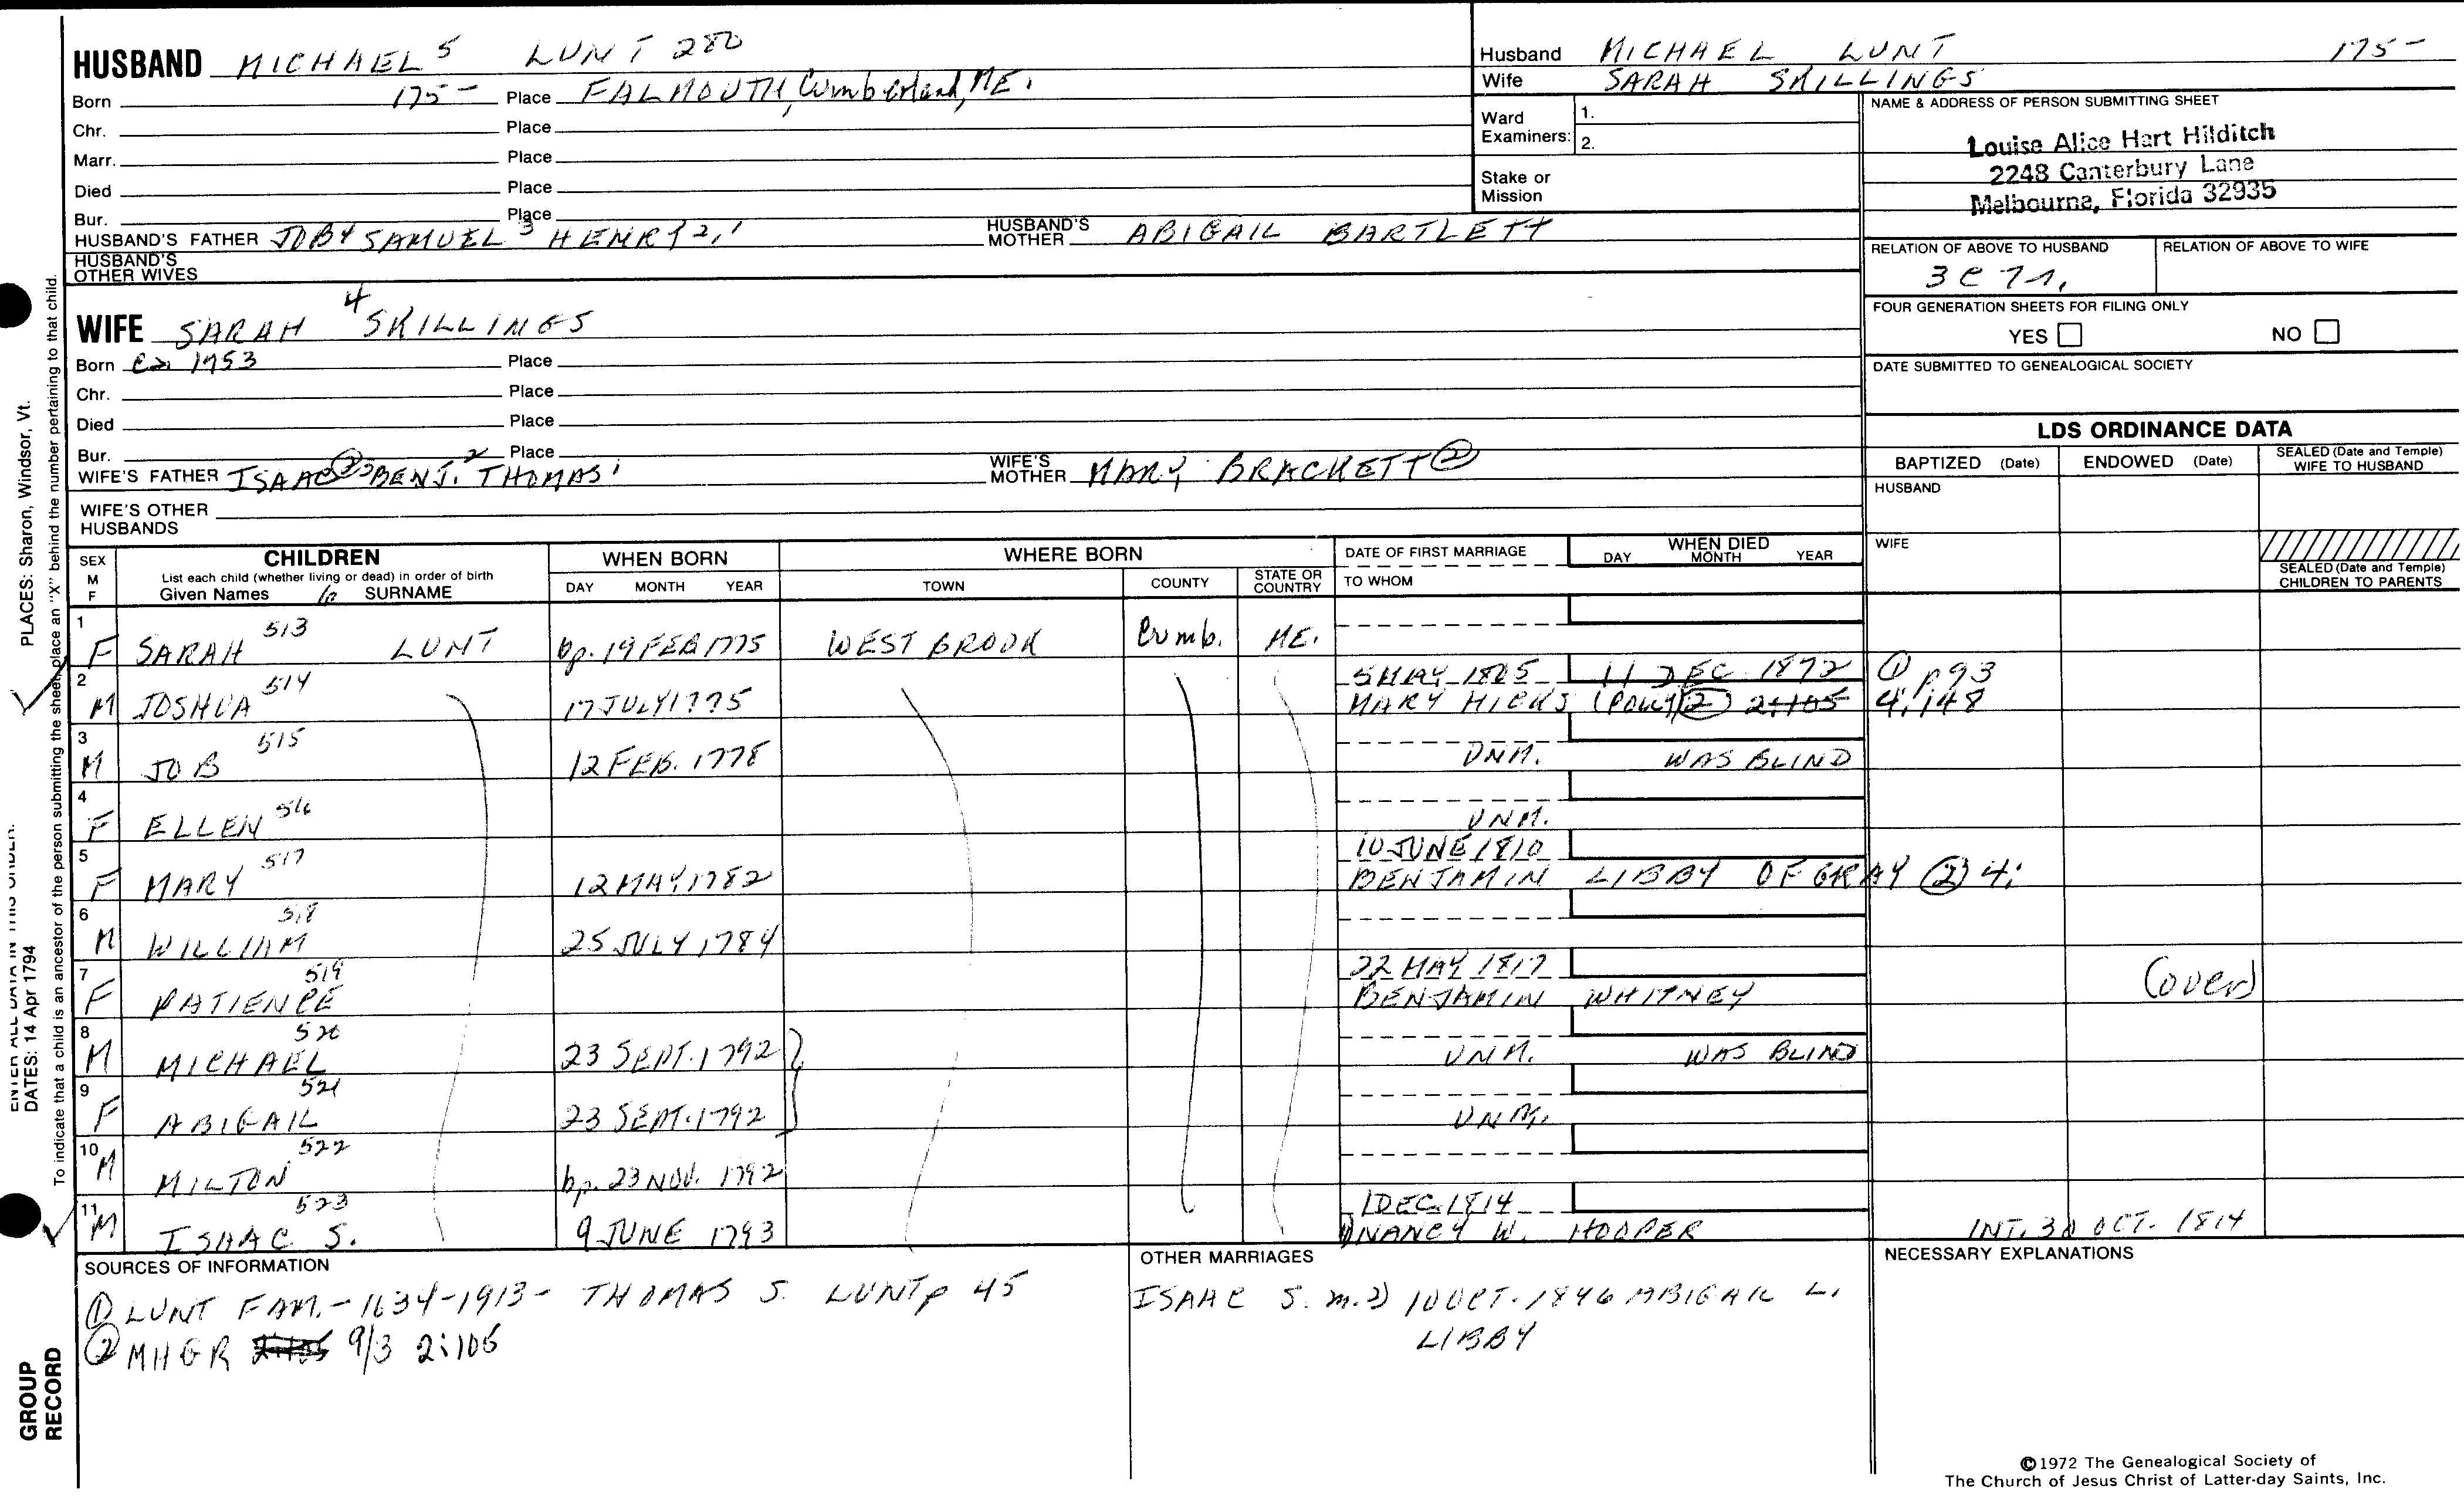 HUSBAND MICHAEL 5 LUNT 280
Born 175- Place FALMOUTH, Cumberland, ME.
Chr. Place
Marr. Place
Died Place
Bur. Place
HUSBAND'S FATHER JOB 4 SAMUEL 3 HENRY 2,1 HUSBAND'S MOTHER ABIGAIL BARTLETT
HUSBAND'S OTHER WIVES
WIFE SARAH 4 SKILLINGS
Born Ca 1753 Place
Chr. Place
Died Place
Bur. Place
WIFE'S FATHER ISAAC 3 BENJ. 2 THOMAS 1 WIFE'S MOTHER MARY BRACKETT ②
WIFE'S OTHER HUSBANDS
Husband MICHAEL LUNT 175-
Wife SARAH SKILLINGS
Ward Examiners: 1.
2.
Stake or Mission
NAME & ADDRESS OF PERSON SUBMITTING SHEET
Louise Alice Hart Hilditch
2248 Canterbury Lane
Melbourne, Florida 32935
RELATION OF ABOVE TO HUSBAND RELATION OF ABOVE TO WIFE
FOUR GENERATION SHEETS FOR FILING ONLY
YES NO
DATE SUBMITTED TO GENEALOGICAL SOCIETY
LDS ORDINANCE DATA
BAPTIZED (Date) ENDOWED (Date) SEALED (Date and Temple) WIFE TO HUSBAND
HUSBAND
WIFE
SEALED (Date and Temple) CHILDREN TO PARENTS
SEX M F CHILDREN List each child (whether living or dead) in order of birth Given Names SURNAME
WHEN BORN DAY MONTH YEAR
WHERE BORN TOWN COUNTY STATE OR COUNTRY
DATE OF FIRST MARRIAGE TO WHOM
WHEN DIED DAY MONTH YEAR
1 F SARAH 513 LUNT bp. 19 FEB 1775 WESTBROOK Cumb. ME.
2 M JOSHUA 514 17 JULY 1775 5 MAY 1805 11 DEC 1872 ① p 93
MARY HICKS (POLLY) ② 2:105 4:148
3 M JOB 515 12 FEB. 1778 UNM. WAS BLIND
4 F ELLEN 516 UNM.
5 F MARY 517 12 MAY 1782 10 JUNE 1810
BENJAMIN LIBBY OF GRAY ② 4:
6 M WILLIAM 518 25 JULY 1784
7 F PATIENCE 519 22 MAY 1817
BENJAMIN WHITNEY (over)
8 M MICHAEL 520 23 SEPT. 1792 UNM. WAS BLIND
9 F ABIGAIL 521 23 SEPT. 1792 UNM.
10 M MILTON 522 bp. 23 NOV. 1792
11 M ISAAC S. 523 9 JUNE 1793 1 DEC. 1814
NANCY W. HOOPER INT. 30 OCT. 1814
SOURCES OF INFORMATION
① LUNT FAM. - 1634-1913 - THOMAS S. LUNT p 45
② MHGR 9/3 2:105
OTHER MARRIAGES
ISAAC S. m. 2) 10 OCT. 1846 ABIGAIL L.
LIBBY
NECESSARY EXPLANATIONS
©1972 The Genealogical Society of
The Church of Jesus Christ of Latter-day Saints, Inc.
PLACES: Sharon, Windsor, Vt.
ENTER ALL DATA IN THIS ORDER:
DATES: 14 Apr 1794
To indicate that a child is an ancestor of the person submitting the sheet, place an "X" behind the number pertaining to that child.
GROUP
RECORD